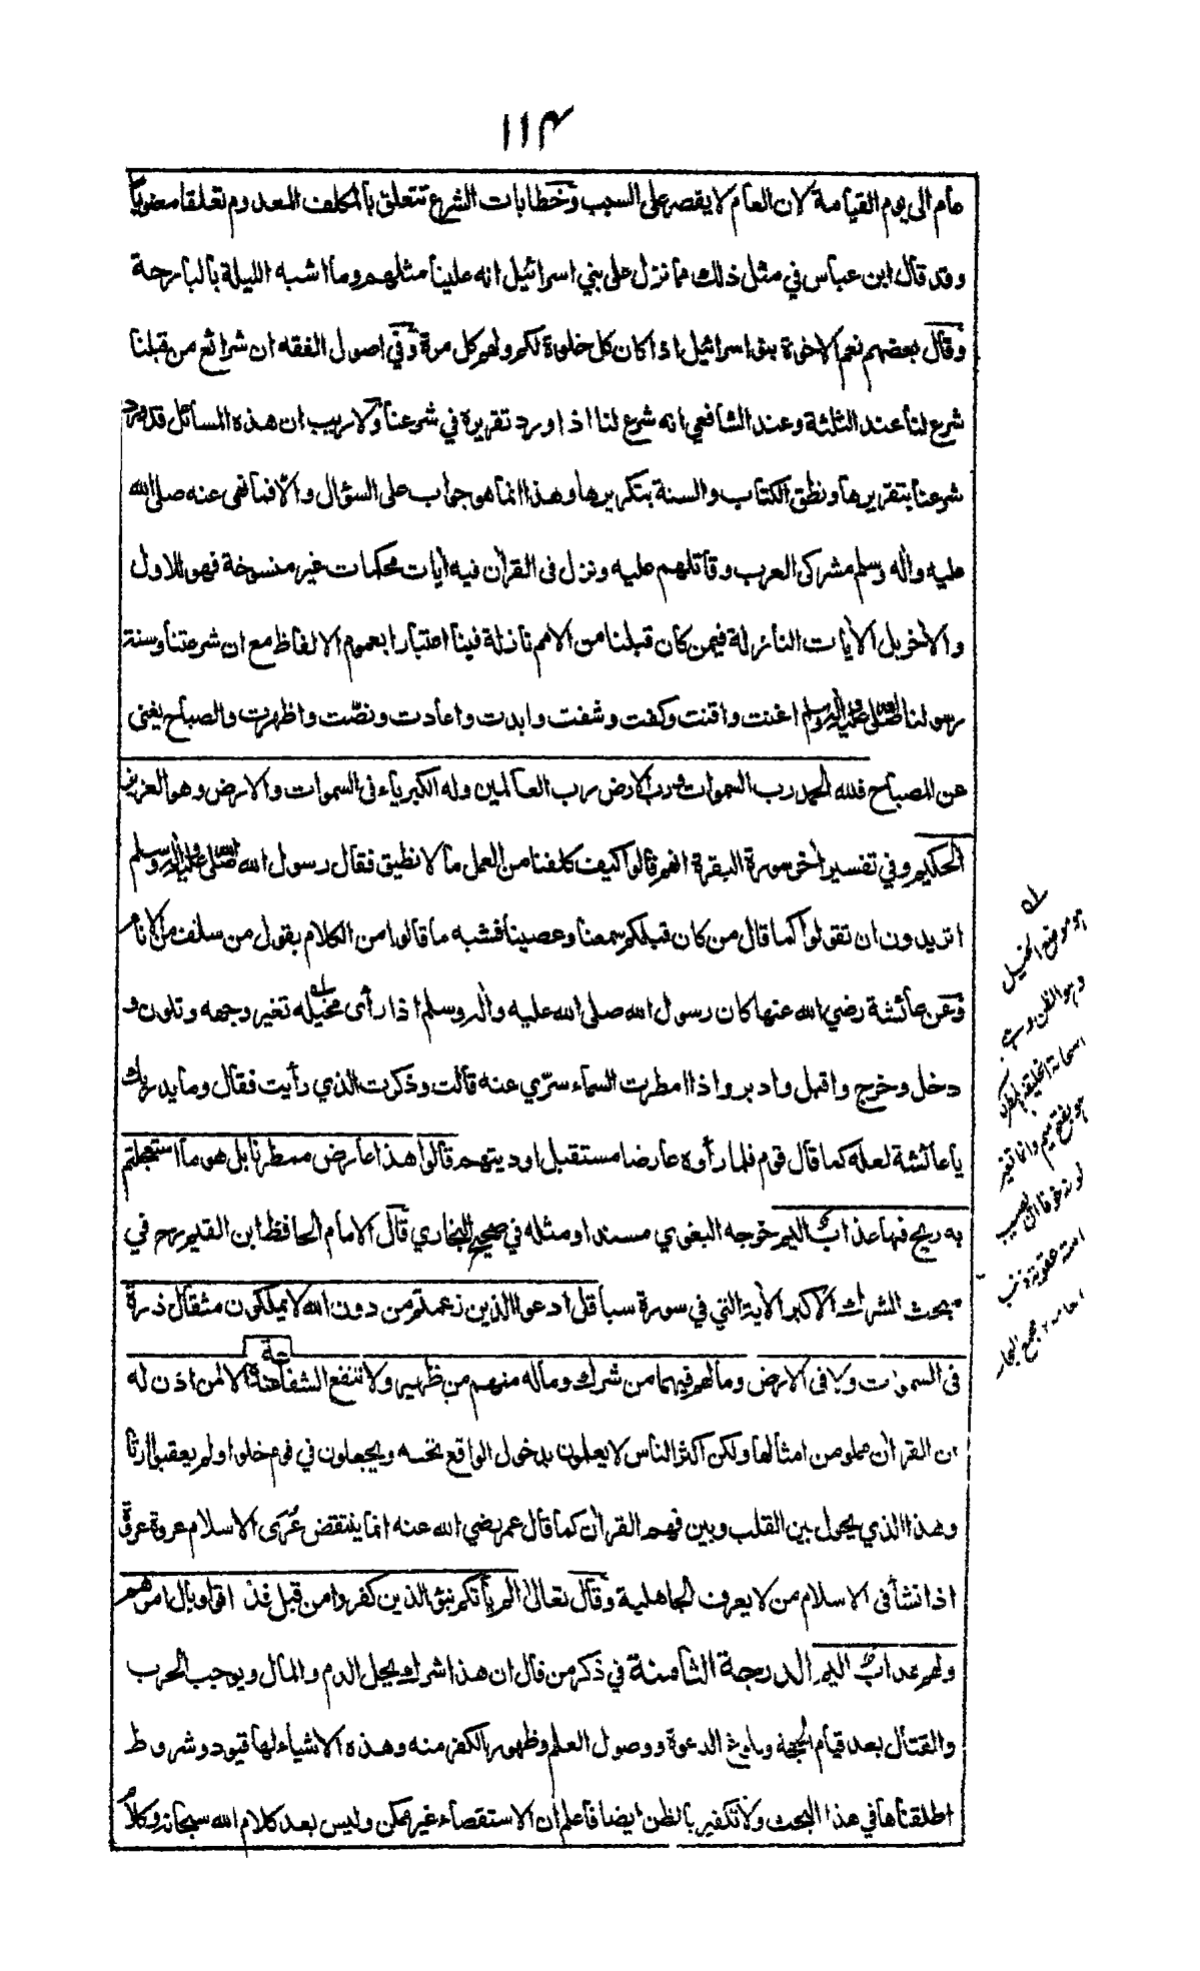 ١١۴
عام الى يوم القيامة لان العام لا يقصر على السبب وخطابات الشرع تتعلق بالمكلف المعدوم تعلقا معنويا
وقد قال ابن عباس في مثل ذلك مما نزل على بني اسرائيل انه علينا مثلهم وما اشبه الليلة بالبارحة
وقال بعضهم نعم الاخوة بنو اسرائيل اذا كان كل حلوة لكم ولهم كل مرة وفي اصول الفقه ان شرائع من قبلنا
شرع لنا عند الثلثة وعند الشافعي انه شرع لنا اذا ورد تقريره في شرعنا ولا ريب ان هذه المسائل قد ورد
شرعنا بتقريرها ونطق الكتاب والسنة بتكريرها وهذا انما هو جواب على السؤال والا فما نهى عنه صلى الله
عليه واله وسلم مشركى العرب وقاتلهم عليه ونزل فى القران فيه ايات محكمات غير منسوخة فهو للاول
والأخر بل الأيات النازلة فيمن كان قبلنا من الامم نازلة فينا اعتبارا بعموم الالفاظ مع ان شرعتنا وسنة
رسولنا صلى الله عليه واله وسلم اغنت واقنت وكفت وشفت وابدت واعادت ونصّت واظهرت والصباح يغنى
عن المصباح فلله الحمد رب السموات ورب الارض رب العالمين وله الكبرياء فى السموات والارض وهو العزيز
الحكيم وفي تفسير أخر سورة البقرة انهم قالوا كيف كلفنا من العمل ما لا نطيق فقال رسول الله صلى الله عليه واله وسلم
اتريدون ان تقولوا كما قال من كان قبلكم سمعنا وعصينا فشبه ما قالوا من الكلام بقول من سلف من الانام
وعن عائشة رضي الله عنها كان رسول الله صلى الله عليه وأله وسلم اذا رأى مخيلة تغير وجهه وتلون و
دخل وخرج واقبل وادبر واذا امطرت السماء سرّي عنه قالت وذكرت الذي رأيت فقال وما يدريك
يا عائشة لعله كما قال قوم فلما رأوه عارضا مستقبل اوديتهم قالوا هذا عارض ممطرنا بل هو ما استعجلتم
به ريح فيها عذاب اليم خرجه البغوي مسندا ومثله في صحيح البخاري قال الامام الحافظ ابن القيم رح في
مبحث الشرك الاكبر الأية التي في سورة سبا قل ادعوا الذين زعمتم من دون الله لا يملكون مثقال ذرة
فى السموات ولا فى الارض وما لهم فيهما من شرك وما له منهم من ظهير ولا تنفع الشفاعة عنده الا لمن اذن له
ان القرأن مملو من امثالها ولكن اكثر الناس لا يعلمون بدخول الواقع تحته ويجعلون في قوم خلوا ولم يعقبوا وارثا
وهذا الذي يحول بين القلب وبين فهم القرأن كما قال عمر رضي الله عنه انما ينتقض عُرَى الاسلام عروة عروة
اذا نشأ فى الاسلام من لا يعرف الجاهلية وقال تعالى الم يأتكم نبؤ الذين كفروا من قبل فذاقوا وبال امرهم
ولهم عذاب اليم الدرجة الثامنة في ذكر من قال ان هذا شرك ويحل الدم والمال ويوجب الحرب
والقتال بعد قيام الحجة وبلوغ الدعوة ووصول العلم وظهور الكفر منه وهذه الاشياء لها قيود وشروط
اطلقناها في هذا المبحث ولا تكفير بالظن ايضا فاعلم ان الاستقصاء غير ممكن وليس بعد كلام الله سبحانه وكلام
له
هو موضع الخيل
وهو الظن وهي
السحابة الخليقة بالمطر